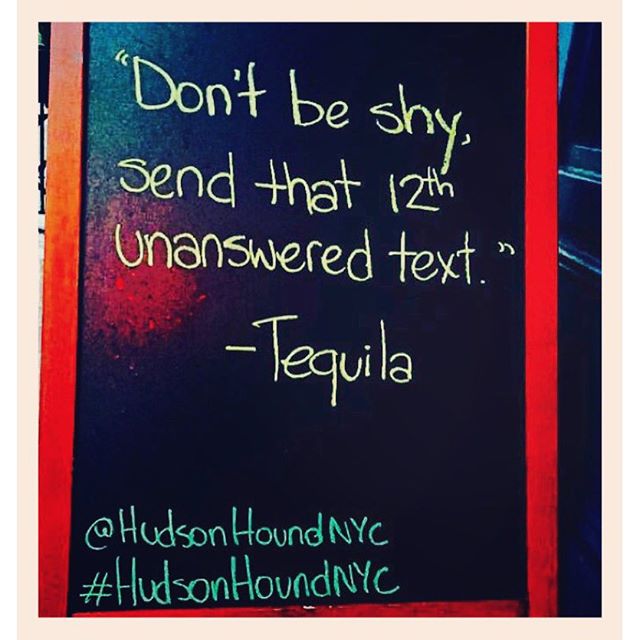 "Don't be shy,
send that 12th
unanswered text."
-Tequila
@HudsonHoundNYC
#HudsonHoundNYC